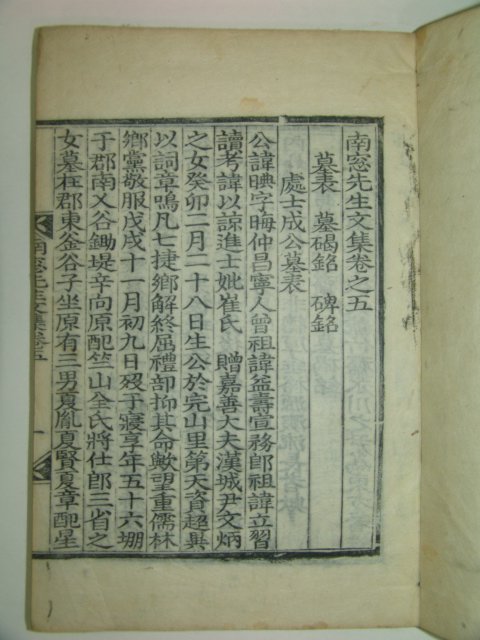 南窓先生文集卷之五
墓表 墓碣銘 碑銘
處士成公墓表
公諱晪字晦仲昌寧人曾祖諱益壽宣務郎祖諱立習
讀考諱以諒進士妣崔氏 贈嘉善大夫漢城尹文炳
之女癸卯二月二十八日生公於完山里第天資超異
以詞章鳴凡七捷鄉解終屈禮部抑其命歟望重儒林
鄉黨敬服戊戌十一月初九日歿于寢享年五十六堋
于郡南乂谷鋤堤辛向原配竺山全氏將仕郎三省之
女墓在郡東金谷子坐原有三男夏胤夏賢夏章配星
南窓先生文集卷五 一